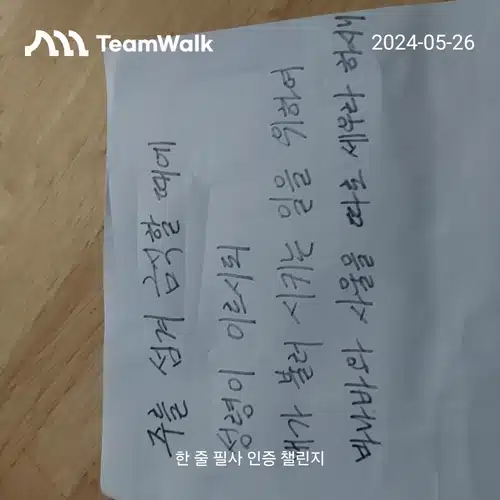 TeamWalk
2024-05-26
주를 섬겨 금식할 때에
성령이 이르시되
내가 불러 시키는 일을 위하여
바나바와 사울을 따로 세우라
한 줄 필사 인증 챌린지